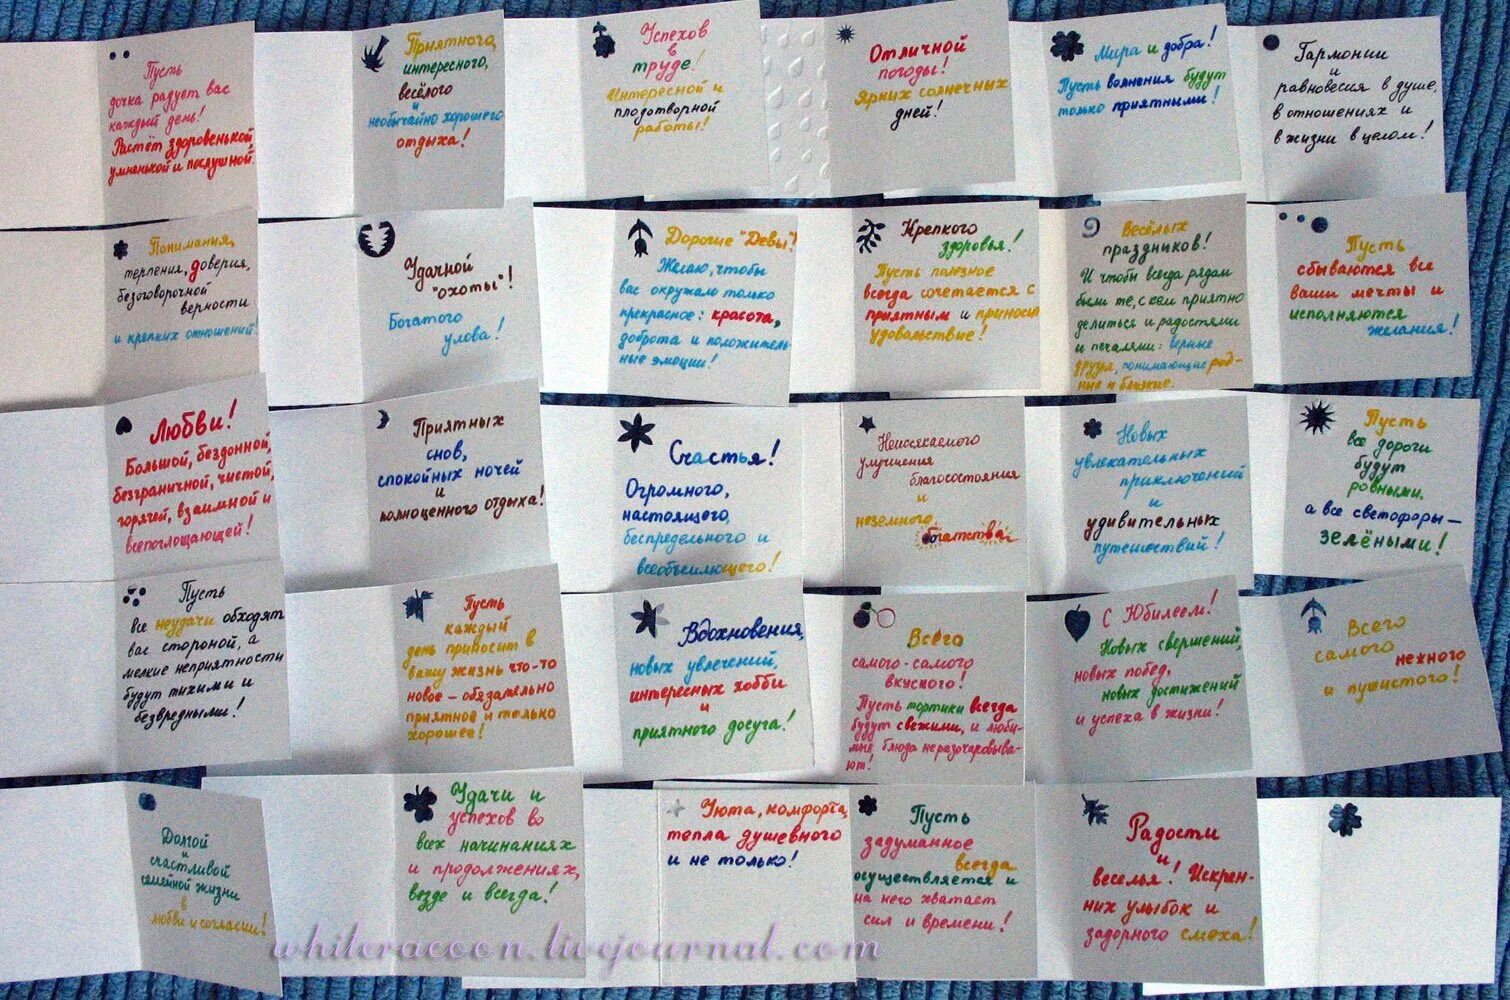 Пусть
дочка радует вас
каждый день!
Растёт здоровенькой,
умненькой и послушной.
Приятного,
интересного,
весёлого
и
необычайно хорошего
отдыха!
Успехов
в
труде!
Интересной и
плодотворной
работы!
Отличной
погоды!
Ярких солнечных
дней!
Мира и добра!
Пусть волнения будут
только приятными!
Гармонии
и
равновесия в душе,
в отношениях и
в жизни в целом!
Понимания,
терпения, доверия,
безоговорочной
верности
и крепких отношений!
Удачной
"охоты"!
Богатого
улова!
Дорогие "Девы"!
Желаю, чтобы
вас окружало только
прекрасное: красота,
доброта и положитель-
ные эмоции!
Крепкого
здоровья!
Пусть полезное
всегда сочетается с
приятным и приносит
удовольствие!
Весёлых
праздников!
И чтобы всегда рядом
были те, с кем приятно
делиться и радостями
и печалями: верные
друзья, понимающие род-
ные и близкие.
Пусть
сбываются все
ваши мечты и
исполняются
желания!
Любви!
Большой, бездонной,
безграничной, чистой,
горячей, взаимной и
всепоглощающей!
Приятных
снов,
спокойных ночей
и
полноценного отдыха!
Счастья!
Огромного,
настоящего,
беспредельного и
всеобъемлющего!
Неиссякаемого
улучшения
благосостояния
и
неземного
богатства!
Новых
увлекательных
приключений
и
удивительных
путешествий!
Пусть
все дороги
будут
ровными,
а все светофоры —
зелёными!
Пусть
все неудачи обходят
вас стороной, а
мелкие неприятности
будут тихими и
безвредными!
Пусть
каждый
день приносит в
вашу жизнь что-то
новое – обязательно
приятное и только
хорошее!
Вдохновения,
новых увлечений,
интересных хобби
и
приятного досуга!
Всего
самого-самого
вкусного!
Пусть тортики всегда
будут свежими, и люби-
мые блюда не разочаровыва-
ют!
С Юбилеем!
Новых свершений,
новых побед,
новых достижений
и успеха в жизни!
Всего
самого
нежного
и пушистого!
Долгой
и
счастливой
семейной жизни
в
любви и согласии!
Удачи и
успехов во
всех начинаниях
и продолжениях,
везде и всегда!
Уюта, комфорта,
тепла душевного
и не только!
Пусть
задуманное
всегда
осуществляется и
на него хватает
сил и времени!
Радости
и
веселья! Искрен-
них улыбок и
задорного смеха!
whiteracoon.livejournal.com